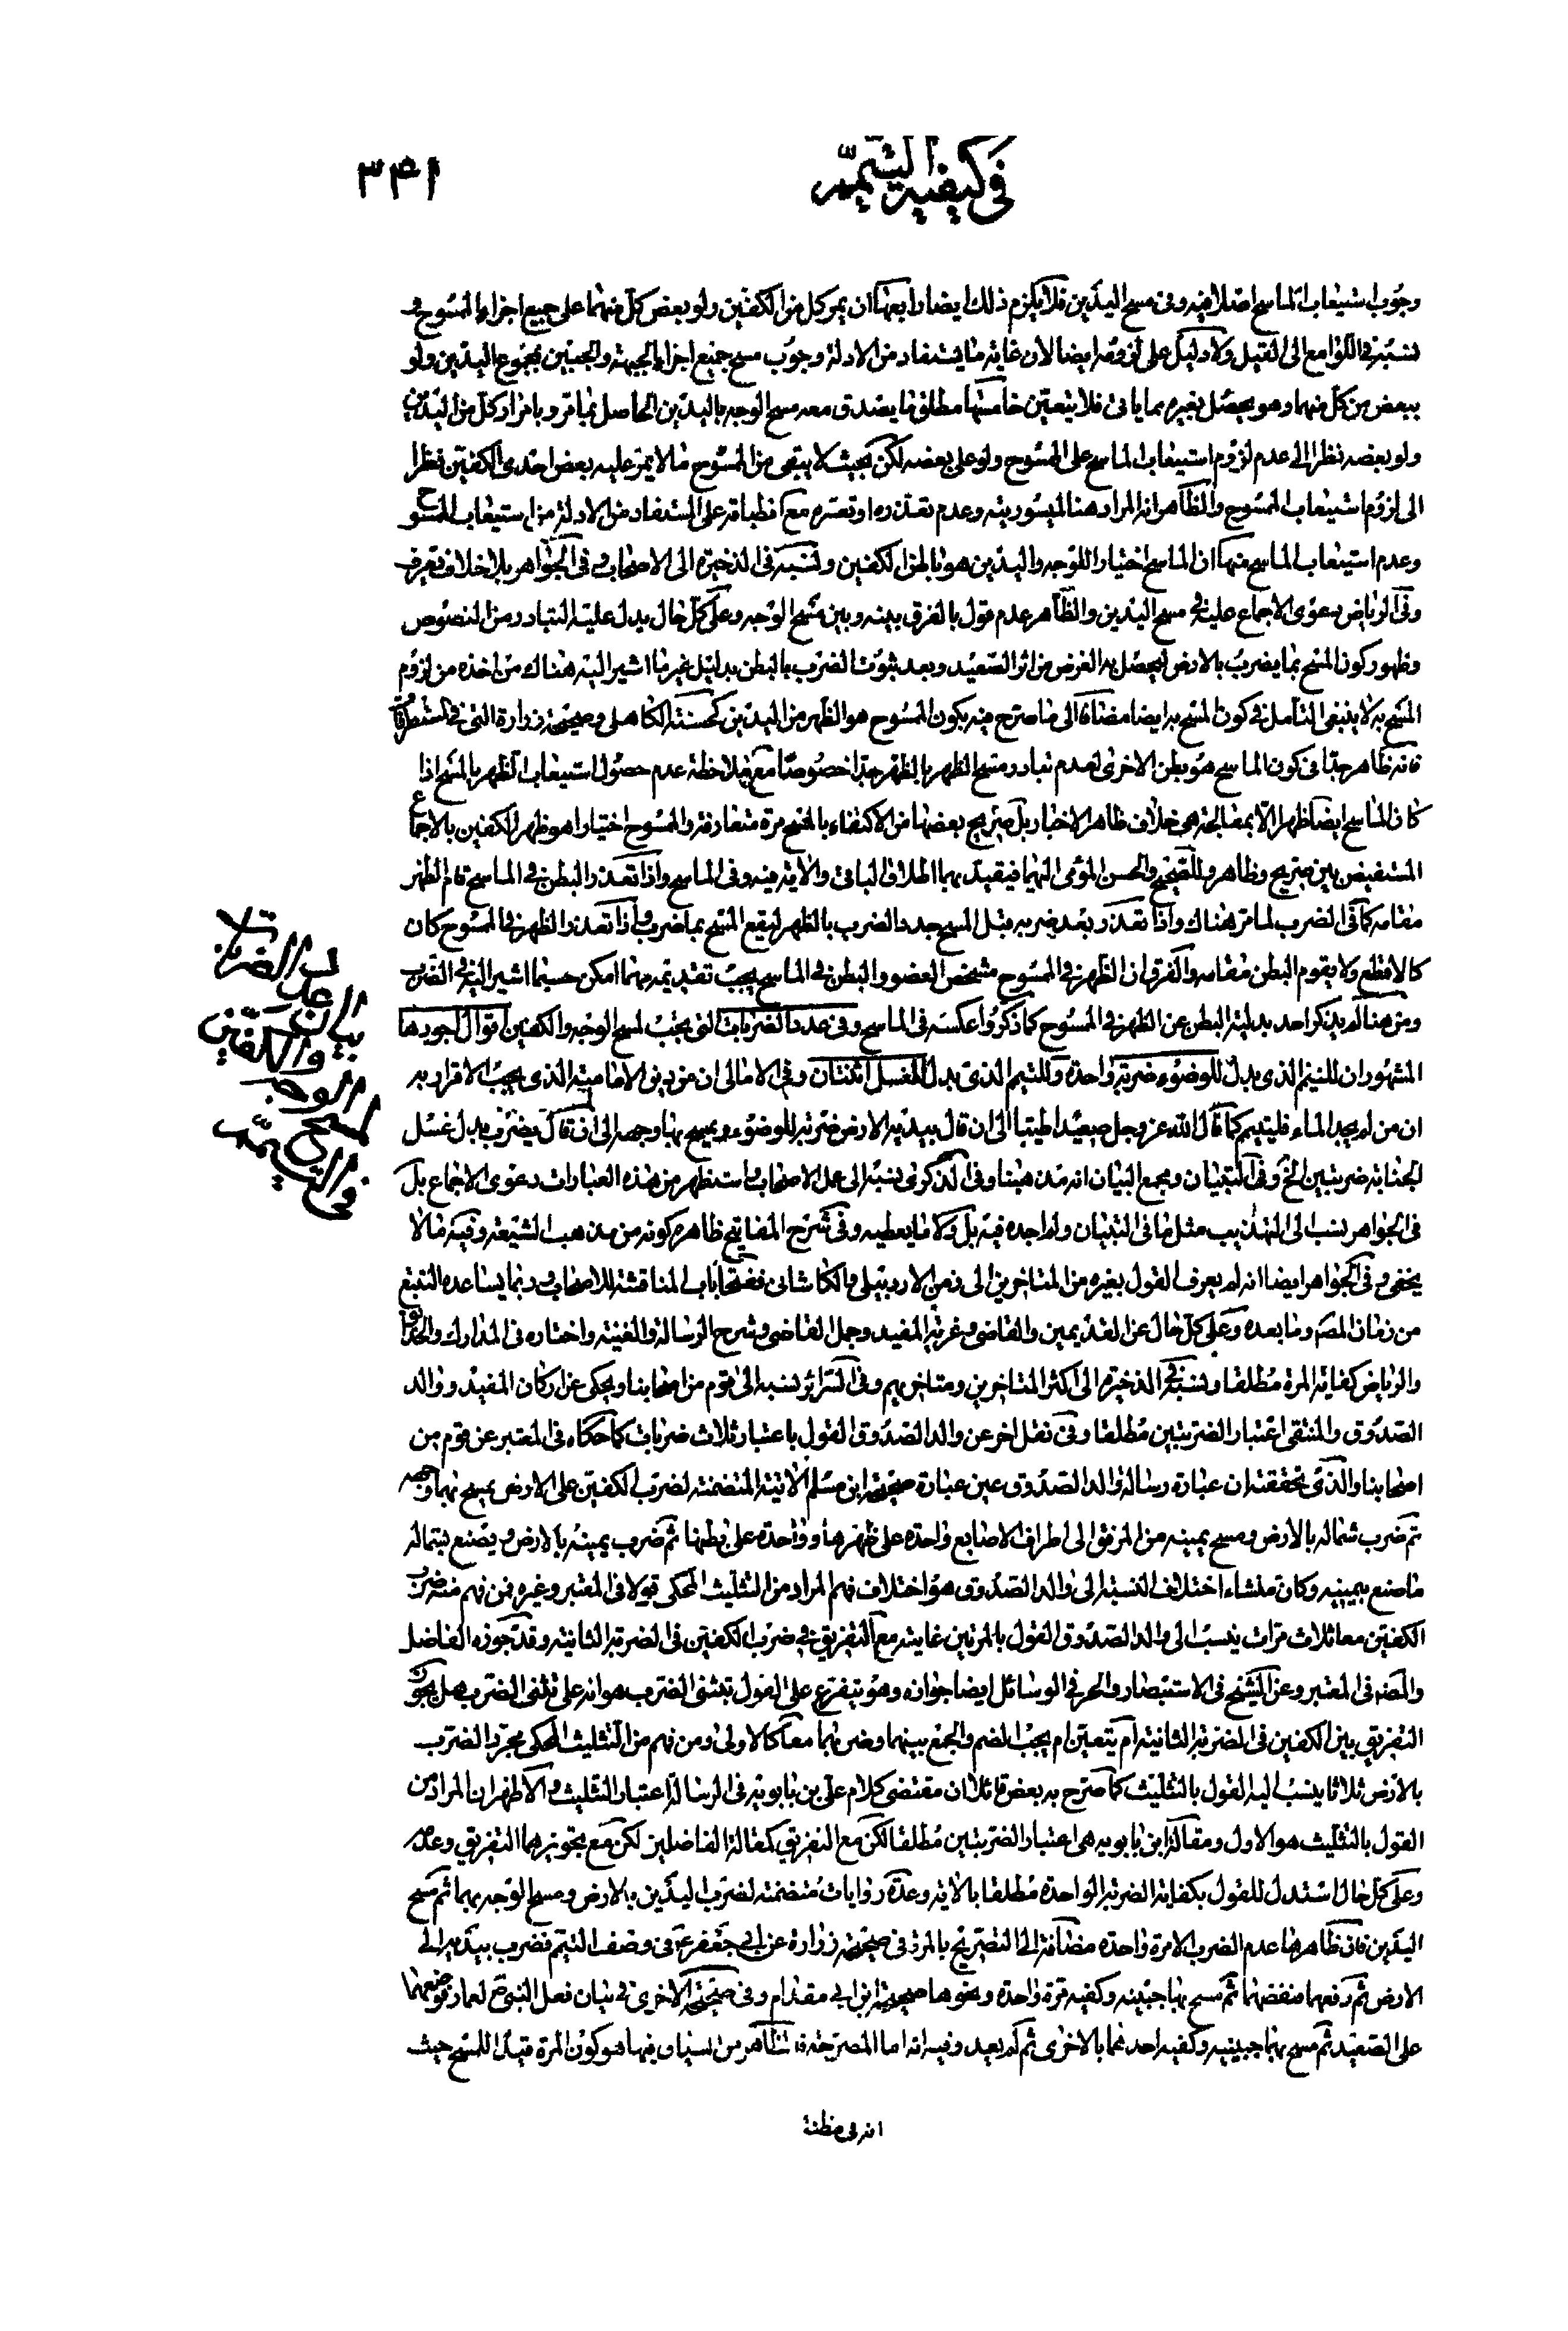 في كيفية التيمّم
٣٤١
وجوب استيعاب الماسح اصلا فيه وفي مسح اليدين فلا يلزم ذلك ايضا رابعها ان يمر كل من الكفين ولو بعض كل منهما على جميع اجزاء الممسوح
نسبه في اللوامع الى القيل ولا دليل على لزومه ايضا لان غاية ما يستفاد من الادلة وجوب مسح جميع اجزاء الجبهة والجبينين بمجموع اليدين ولو
ببعض من كل منهما وهو يحصل بغيره مما ياتى فلا يتعين خامسها مطلق ما يصدق معه مسح الوجه باليدين الحاصل بما مر وبامرار كل من اليدين
ولو بعضه نظرا الى عدم لزوم استيعاب الماسح على الممسوح ولو على بعضه لكن بحيث لا يبقى من الممسوح ما لا يمر عليه بعض احدى الكفين نظرا
الى لزوم استيعاب الممسوح والظاهر انه المراد هنا لميسوريته وعدم تعذره او تعسره مع انطباقه على المستفاد من الادلة من استيعاب الممسوح
وعدم استيعاب الماسح منها ان الماسح اختيارا للوجه واليدين هو باطن الكفين ونسبه في الذخيرة الى الاصحاب وفي الجواهر بلا خلاف
وفي الرياض دعوى الاجماع عليه في مسح اليدين والظاهر عدم قول بالفرق بينه وبين مسح الوجه وعلى كل حال يدل عليه التبادر من النصوص
وظهور كون المسح بما يضرب بالارض ليحصل به الغرض من اثر الصعيد وبعد ثبوت الضرب بالبطن بدليل غير ما اشير اليه هناك من اخذه من لزوم
المسح به لا ينبغي التامل في كون المسح به ايضا مضافا الى ما صرح فيه بكون الممسوح هو الظهر من اليدين كحسنة الكاهلى وصحيحة زرارة التى في
فانه ظاهر جدا في كون الماسح هو بطن الاخرى لعدم تبادر مسح الظهر بالظهر جدا خصوصا مع ملاحظة عدم حصول استيعاب الظهر بالمسح اذا
كان الماسح ايضا ظهرا الا بمعالجة هى خلاف ظاهر الاخبار بل صريح بعضها من الاكتفاء بالمسح مرة متعارفة والممسوح اختيارا هو ظهر الكفين بالاجماع
المستفيض بين صريح وظاهر وللصحيح والحسن المومى اليهما فيقيد بهما اطلاق الباقى والاية فيه وفي الماسح واذا تعذر البطن في الماسح قام الظهر
مقامه كما في الضرب لما مر هناك واذا تعذر بعد ضربه قبل المسح جدد الضرب بالظهر ليقع المسح بما ضرب واذا تعذر الظهر في الممسوح كان
كالاقطع ولا يقوم البطن مقامه والفرق ان الظهر في الممسوح مشخص العضو والبطن في الماسح يجب تقديمه مهما امكن حسبما اشير اليه في الضرب
ومن هنا لم يذكر احد بدلية البطن عن الظهر في الممسوح كما ذكروا عكسه في الماسح وفي عدد الضربات التى يجب لمسح الوجه والكفين اقوال اجودها
المشهور ان للتيمم الذى بدل للوضوء ضربة واحدة وللتيمم الذى بدل للغسل اثنتان وفي الامالى ان من دين الامامية الذى يجب الاقرار به
ان من لم يجد الماء فليتيمم كما قال الله عز وجل صعيدا طيبا الى ان قال بيديه الارض ضربة للوضوء ويمسح بها وجهه الى ان قال يضرب بدل غسل
الجنابة ضربتين الخ وفي التبيان ومجمع البيان انه مذهبنا وفي الذكرى نسبه الى عمل الاصحاب واستظهر من هذه العبارات دعوى الاجماع بل
في الجواهر نسب الى التهذيب مثل ما في التبيان ولم اجده فيه بل ولا ما يعطيه وفي شرح المفاتيح ظاهره كونه من مذهب الشيعة وفيه ما لا
يخفى وفي الجواهر ايضا انه لم يعرف القول بغيره من المتاخرين الى زمن الاردبيلى والكاشانى ففتحا باب المناقشة للاصحاب وربما يساعده التتبع
من زمان المصم وما بعده وعلى كل حال عن القديمين والقاضى وغرية المفيد وجمل القاضى وشرح الرسالة والغنية واختاره في المدارك والحدائق
والرياض كفاية المرة مطلقا ونسبه في الذخيرة الى اكثر المتاخرين ومتاخريهم وفي السرائر نسبه الى قوم من اصحابنا ويحكى عن اركان المفيد ووالد
الصدوق والمنتقى اعتبار الضربتين مطلقا وفي نقل اخر عن والد الصدوق القول باعتبار ثلاث ضربات كما حكاه في المعتبر عن قوم من
اصحابنا والذى تحققته ان عبارة رسالة والد الصدوق عين عبارة صحيحة ابن مسلم الاتية المتضمنة لضرب الكفين على الارض يمسح بهما وجهه
ثم ضرب شماله بالارض ومسح يمينه من المرفق الى اطراف الاصابع واحدة على ظهرها وواحدة على بطنها ثم ضرب يمينه بالارض ويصنع بشماله
ما صنع بيمينه وكان منشاء اختلاف النسبة الى والد الصدوق هو اختلاف فهم المراد من التثليث المحكى قولا في المعتبر وغيره فمن فهم منه ضرب
الكفين معا ثلاث مرات ينسب الى والد الصدوق القول بالمرتين غايته مع التفريق في ضرب الكفين في الضربة الثانية وقد جوزه الفاضل
والمصم في المعتبر وعن الشيخ في الاستبصار والحر في الوسائل ايضا جوازه وهو يتفرع على القول بتثنى الضرب هو انه على تثنى الضرب هل يجوز
التفريق بين الكفين في الضربة الثانية ام يتعين ام يجب الضم والجمع بينهما وضربهما معا كالاولى ومن فهم من التثليث المحكى مجرد الضرب
بالارض ثلاثا ينسب اليه القول بالتثليث كما صرح به بعض قائلا ان مقتضى كلام على بن بابويه في الرسالة اعتبار التثليث والاظهر ان المراد من
القول بالتثليث هو الاول ومقالة ابن بابويه هى اعتبار الضربتين مطلقا لكن مع التفريق كمقالة الفاضلين لكن مع تجويزهما التفريق وعدمه
وعلى كل حال استدل للقول بكفاية الضربة الواحدة مطلقا بالاية وعدة روايات متضمنة لضرب اليدين بالارض ومسح الوجه بهما ثم مسح
اليدين فان ظاهرها عدم الضرب الا مرة واحدة مضافة الى التصريح بالمرة في صحيحة زرارة عن ابى جعفر ع في وصف التيمم فضرب بيديه الى
الارض ثم رفعهما فنفضهما ثم مسح بهما جبينه وكفيه مرة واحدة ونحوها صحيحة ابن ابى مقدام وفي صحيحته الاخرى في بيان فعل النبي ص لعمار فوضعهما
على الصعيد ثم مسح بهما جبينيه وكفيه احدهما بالاخرى ثم لم يعد وفيه انه اما المصرحة فالظاهر من السياق فيها هو كون المرة قيدا للمسح حيث
انه في مظنة
بيان عدد الضربات
لمسح الوجه والكفين
في التيمّم